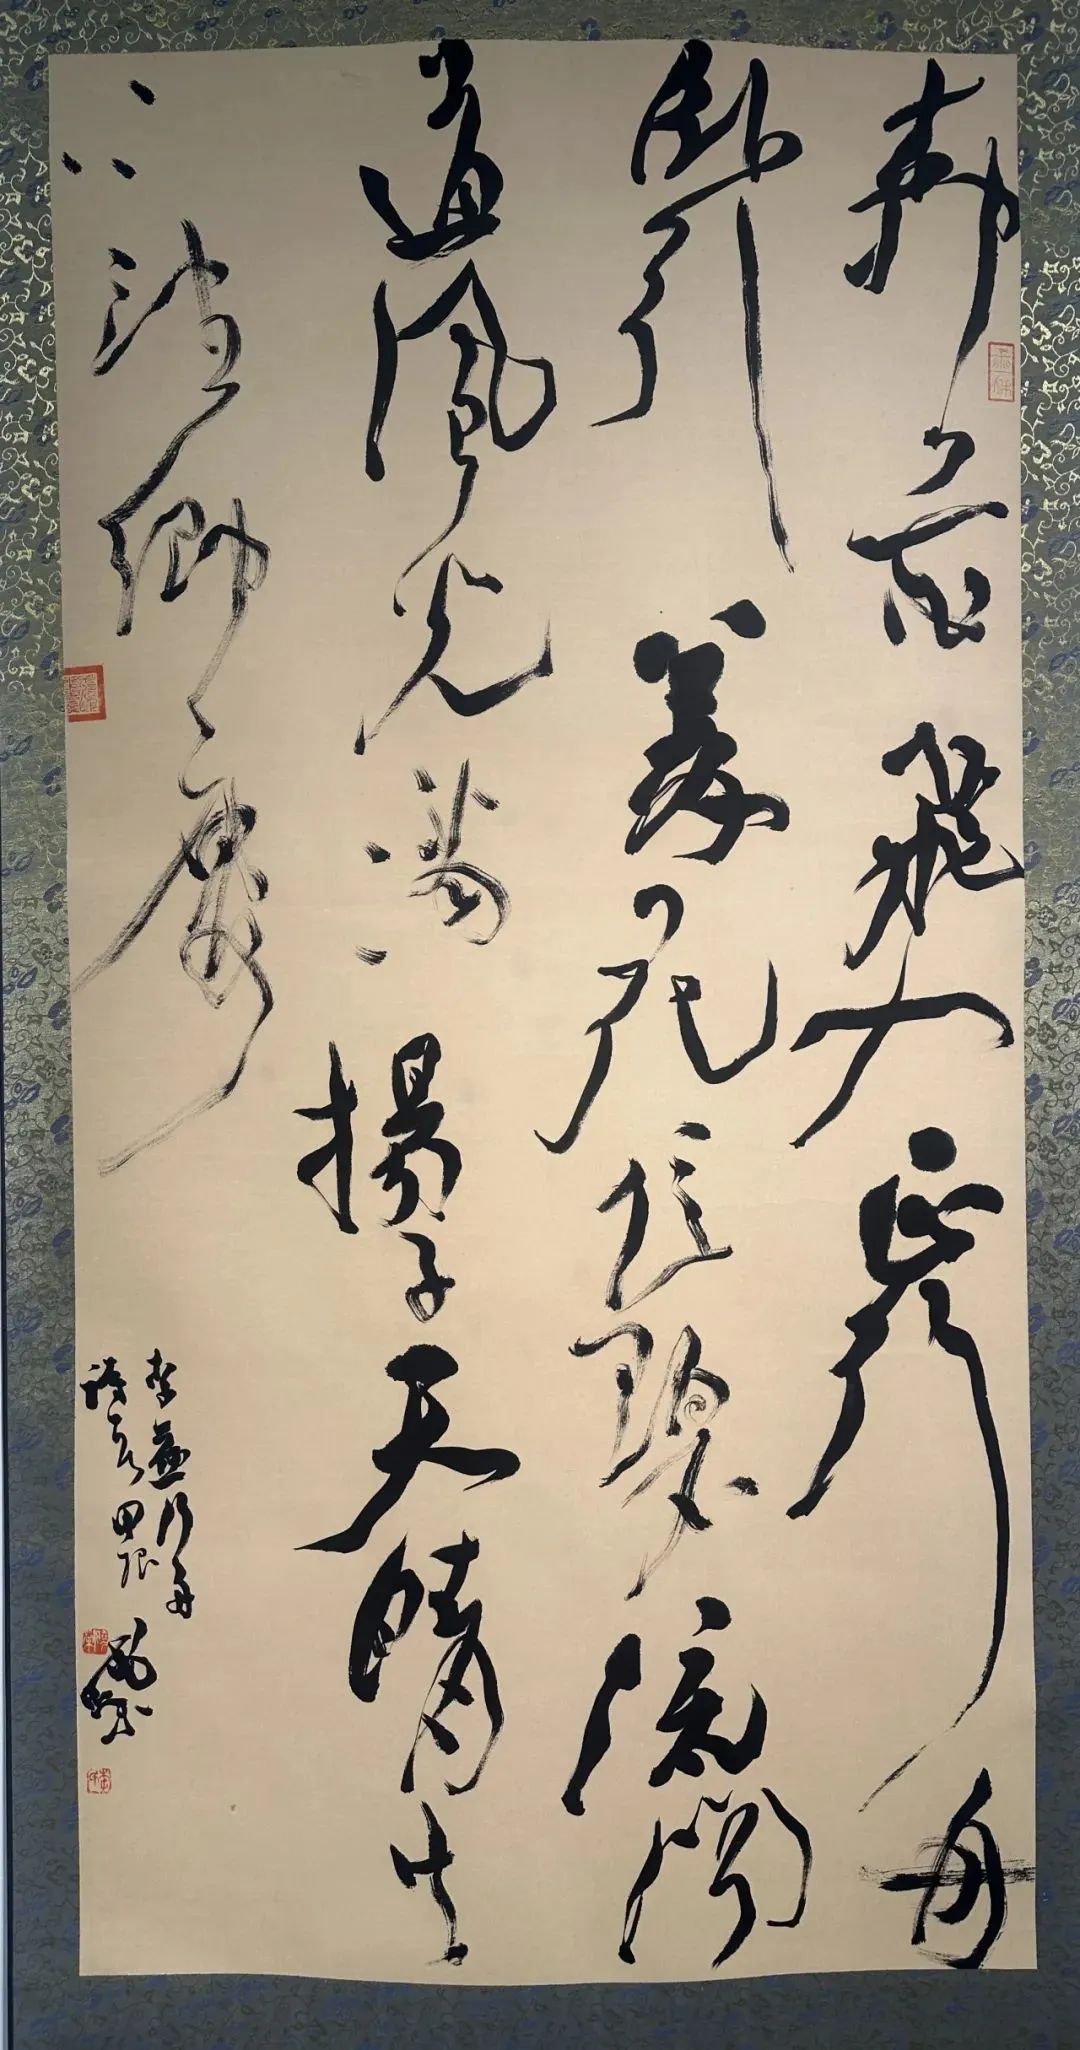 柳花飛入正行舟
卧引菱花信碧流聞
道風光滿揚子天晴共
上望鄉樓
李益行舟
詩 甲辰